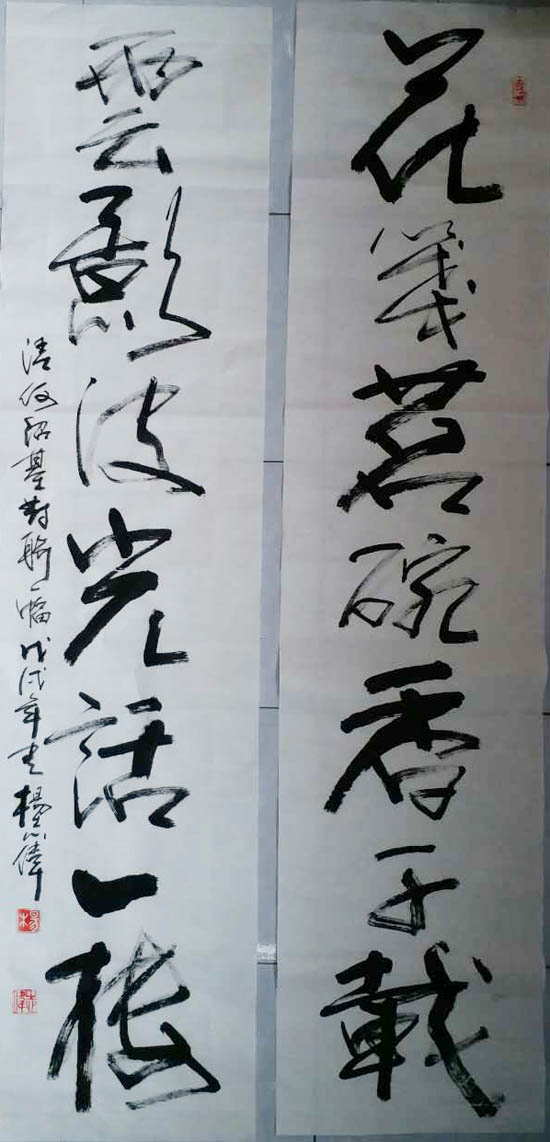 花箋茗碗香千載
雲影波光話一樓
清何紹基對聯一幅 戊戌年 楊偉
楊